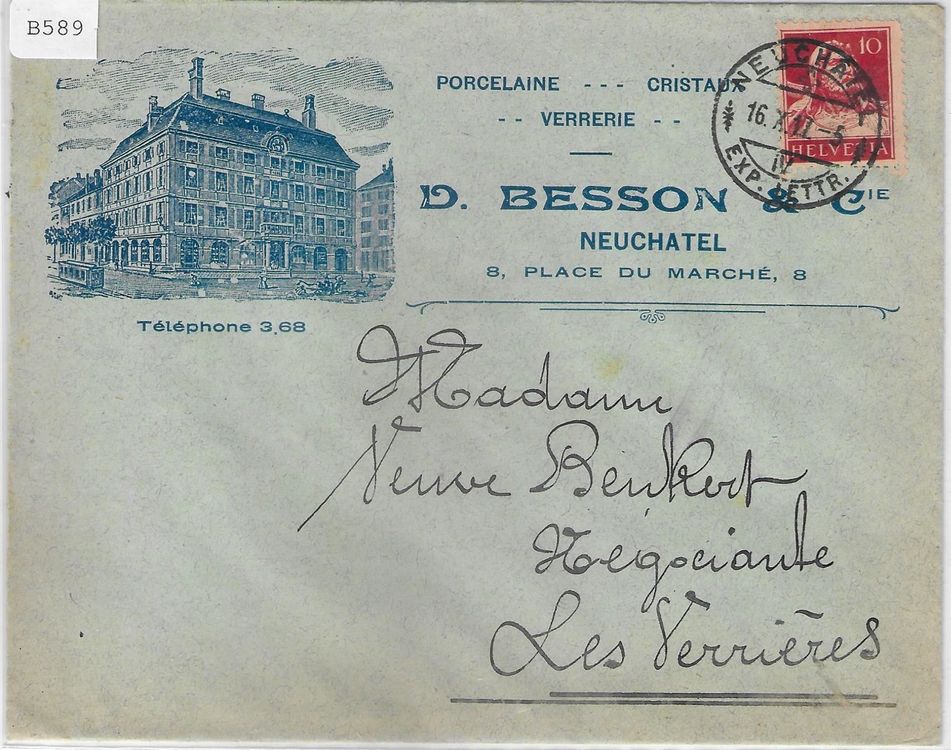 B589
PORCELAINE --- CRISTAUX
-- VERRERIE --
D. BESSON & CIE
NEUCHATEL
8, PLACE DU MARCHÉ, 8
Téléphone 3,68
10
HELVETIA
NEUCHATEL
16.X.17.-5
IV
EXP. LETTR.
Madame
Veuve Benkert
Négociante
Les Verrières